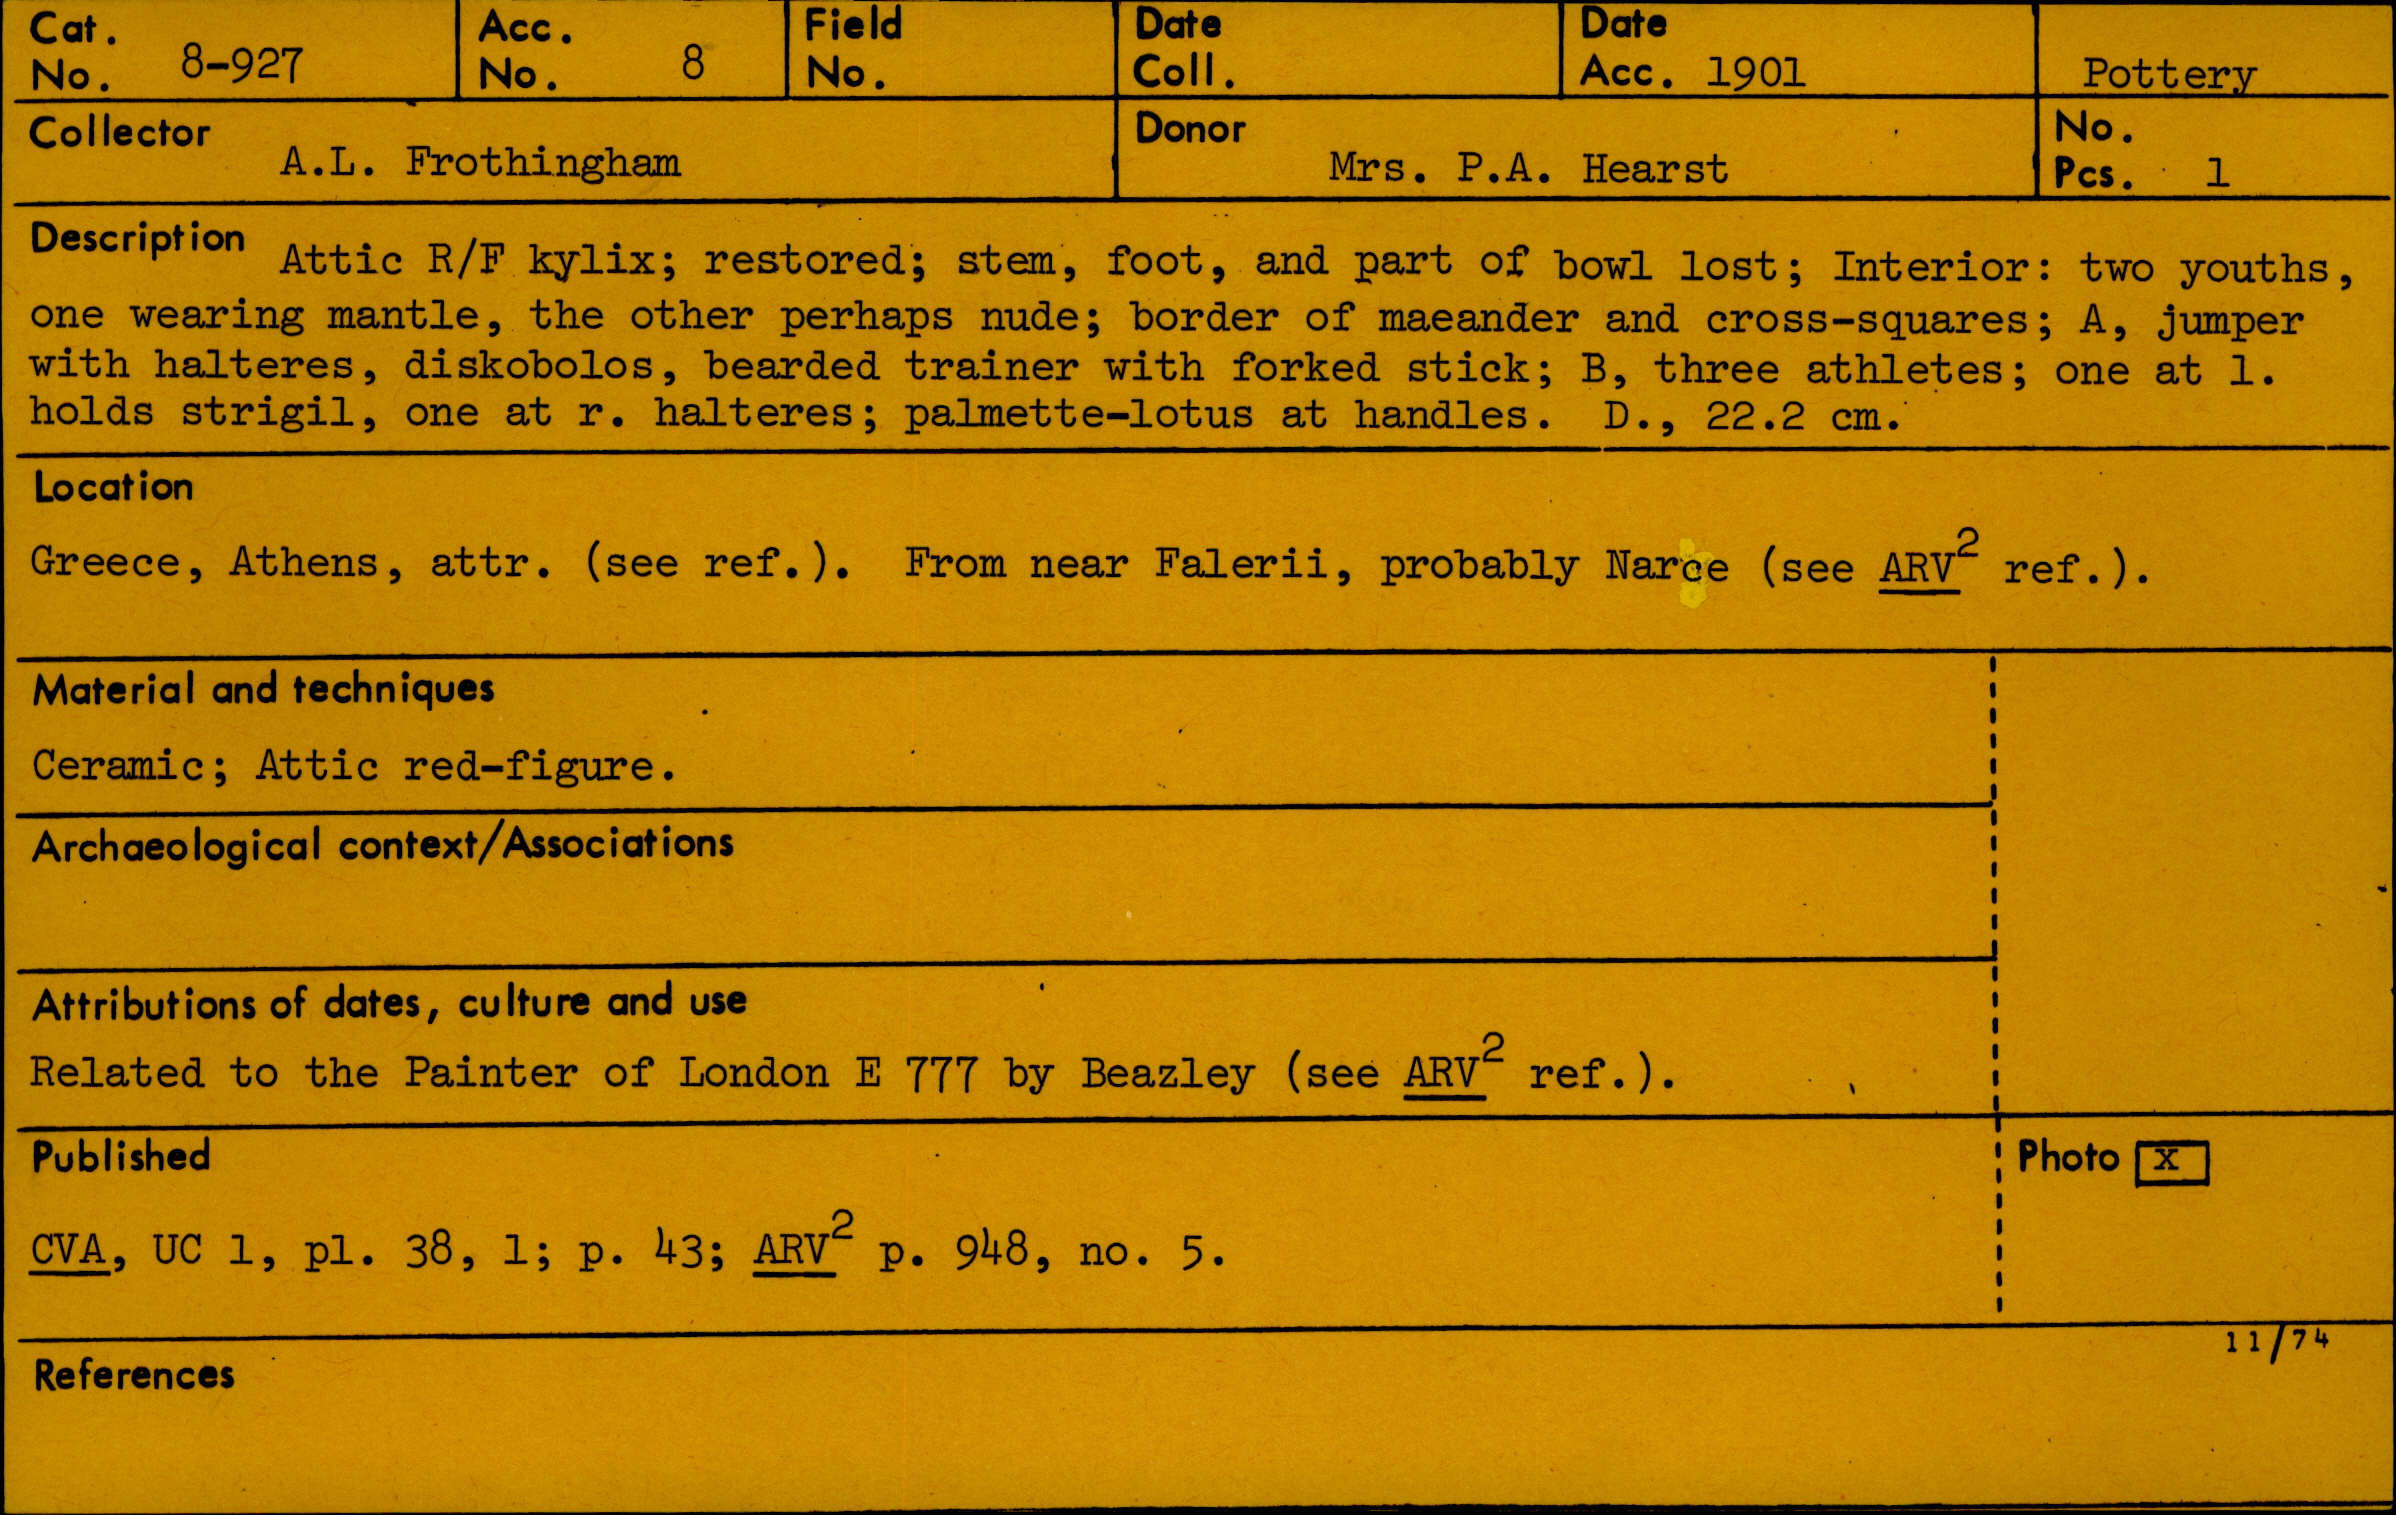 Cat. No. 8-927
Acc. No. 8
Field No.
Date Coll.
Date Acc. 1901
Pottery
Collector A.L. Frothingham
Donor Mrs. P.A. Hearst
No. Pcs. 1
Description Attic R/F kylix; restored; stem, foot, and part of bowl lost; Interior: two youths,
one wearing mantle, the other perhaps nude; border of maeander and cross-squares; A, jumper
with halteres, diskobolos, bearded trainer with forked stick; B, three athletes; one at l.
holds strigil, one at r. halteres; palmette-lotus at handles. D., 22.2 cm.
Location
Greece, Athens, attr. (see ref.). From near Falerii, probably Narce (see ARV² ref.).
Material and techniques
Ceramic; Attic red-figure.
Archaeological context/Associations
Attributions of dates, culture and use
Related to the Painter of London E 777 by Beazley (see ARV² ref.).
Published
Photo X
CVA, UC 1, pl. 38, 1; p. 43; ARV² p. 948, no. 5.
11/74
References